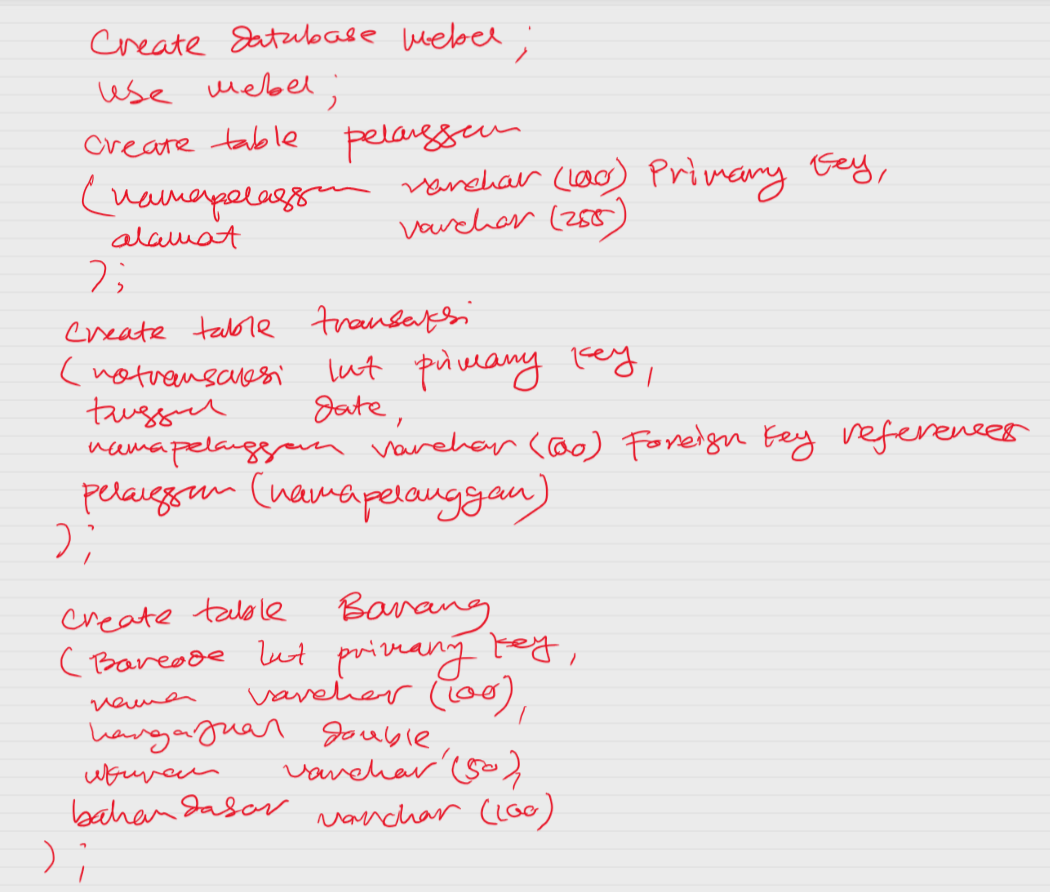 Create Database mebel;
use mebel;
create table pelanggan
(namapelanggan varchar (100) Primary Key,
alamat varchar (255)
);
create table transaksi
(notransaksi int primary key,
tanggal date,
namapelanggan varchar (100) Foreign key references
pelanggan (namapelanggan)
);
create table Barang
(Barcode int primary key,
nama varchar (100),
hargajual double,
ukuran varchar (50),
bahandasar varchar (100)
);